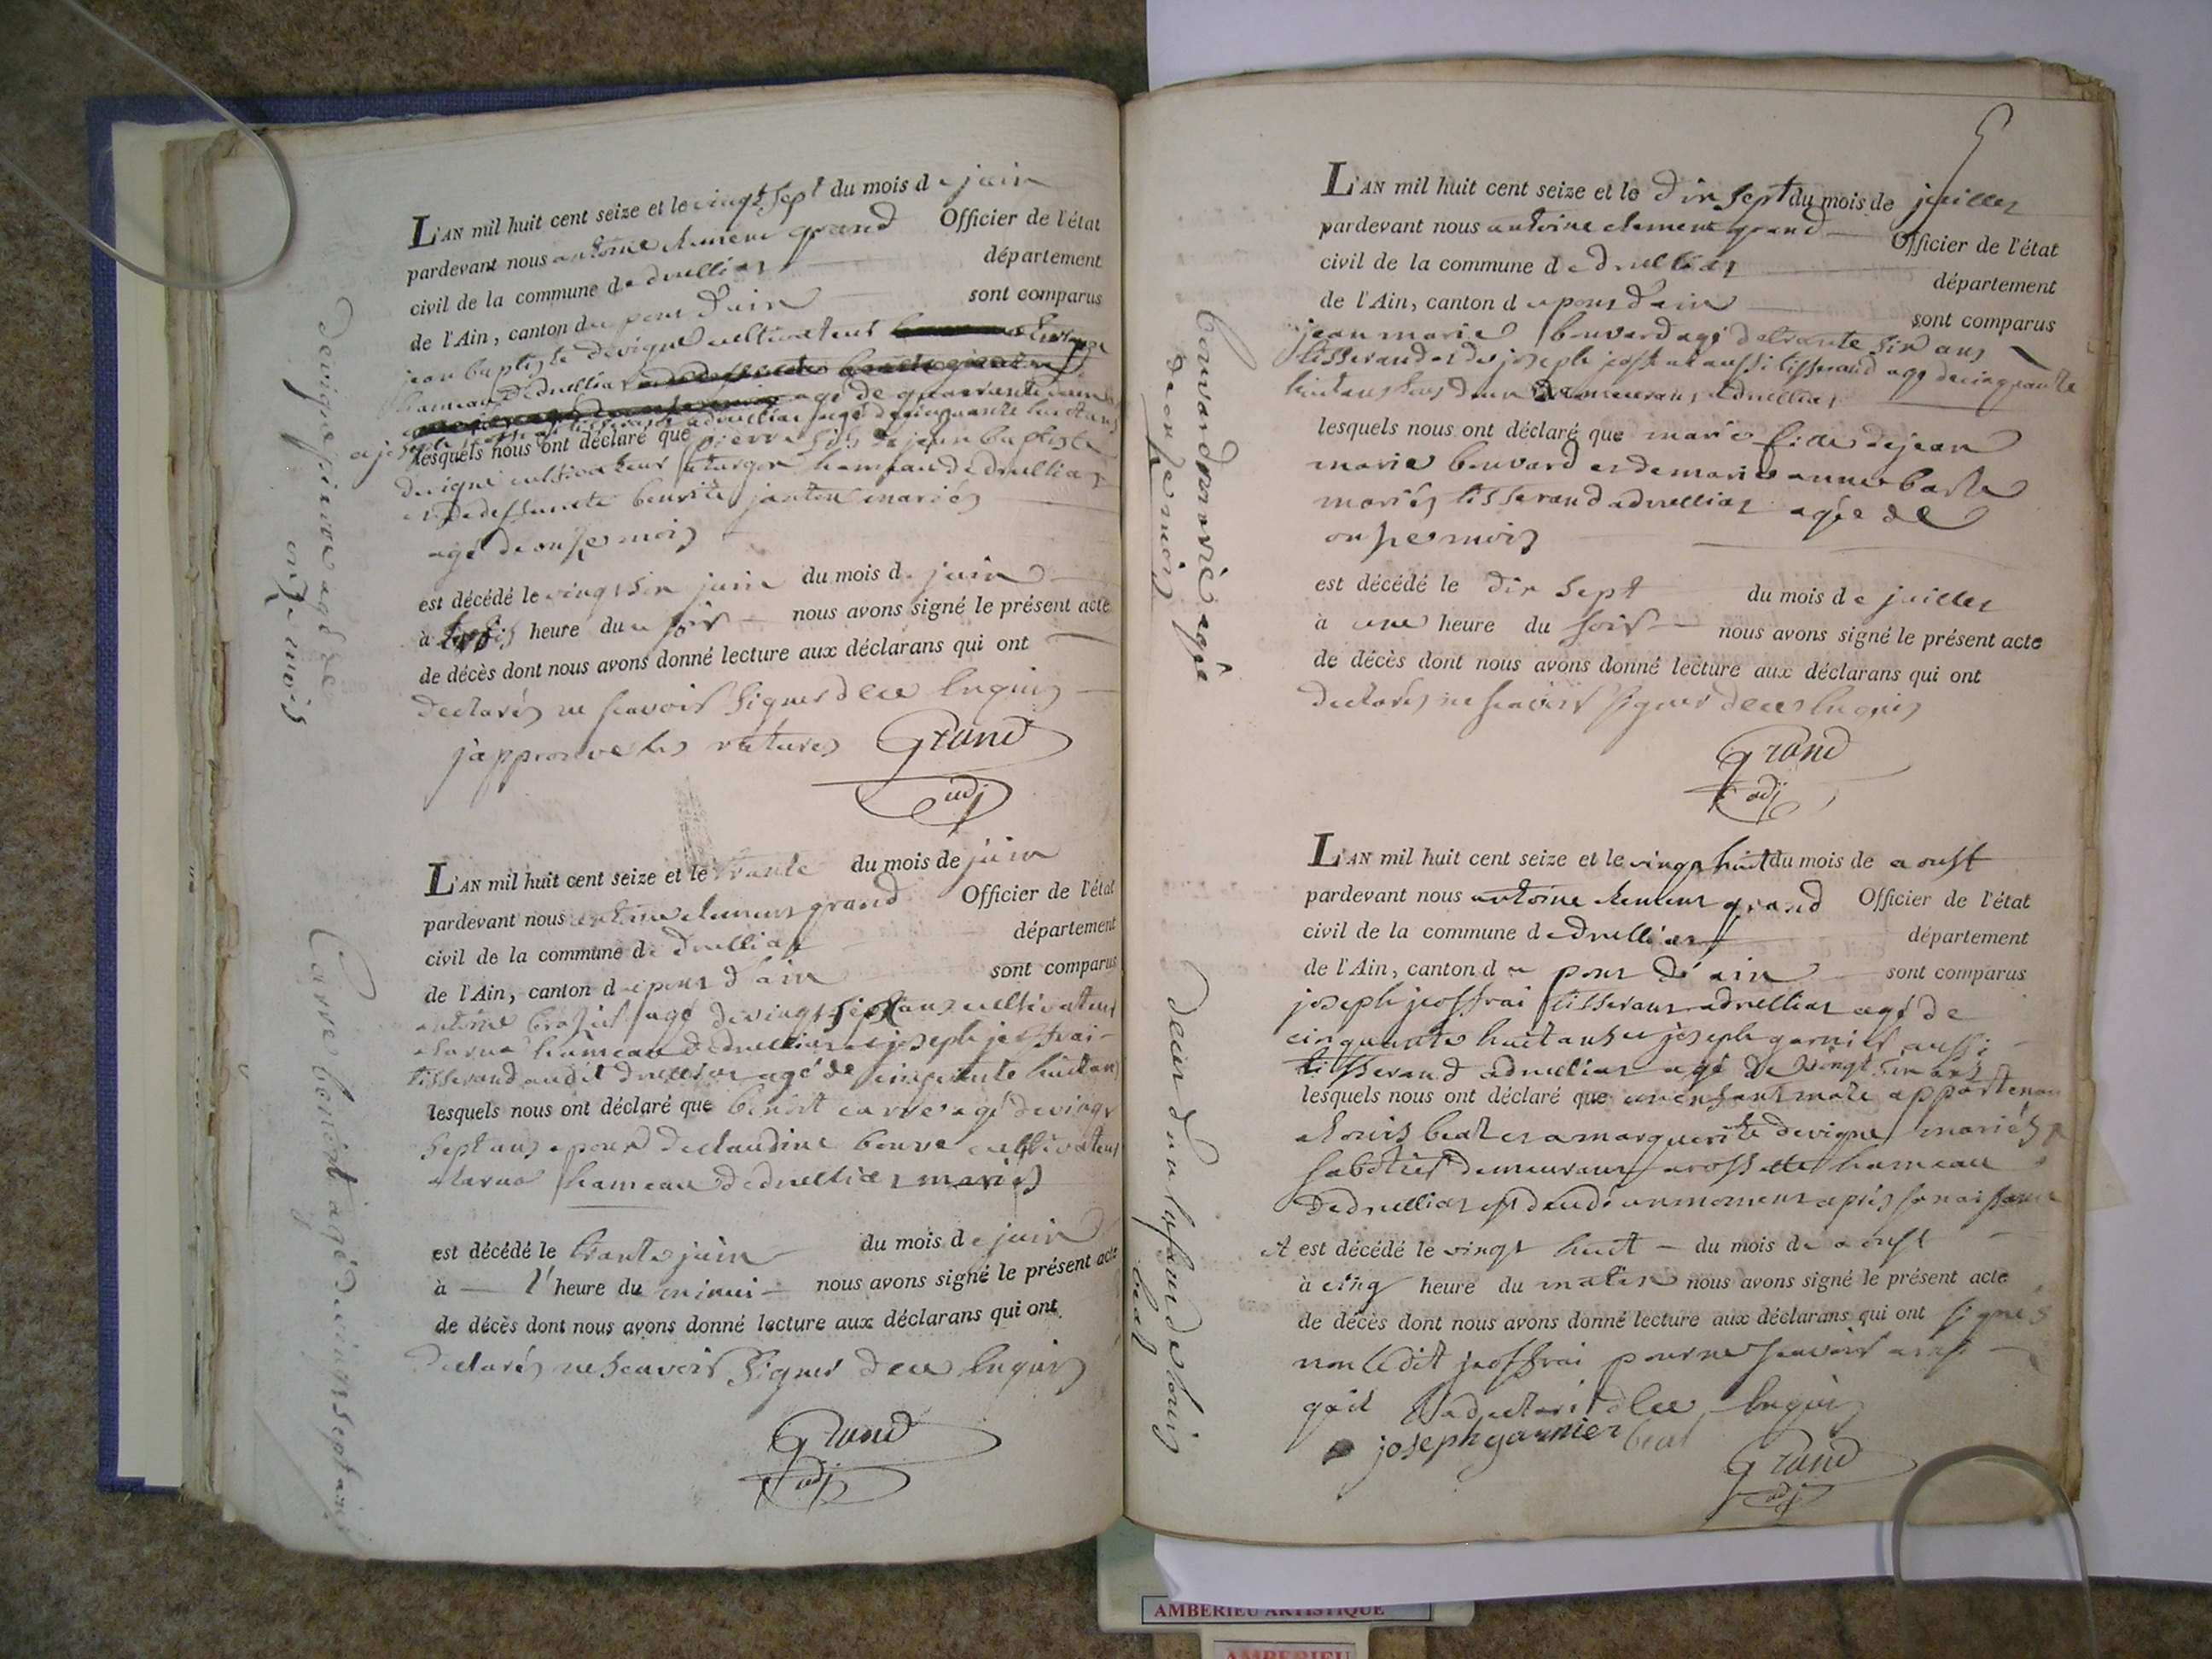 L'AN mil huit cent seize et le vingt sept du mois de juin
pardevant nous antoine clement grand Officier de l'état
civil de la commune de druillias département
de l'Ain, canton du pont d'ain sont comparus
jean baptiste devigne cultivateur
hameau de druillias
agé de quarante
tisserand a druillias agé de cinquante huit ans
lesquels nous ont déclaré que pierre fils de jean baptiste
devigne cultivateur hameau de druillias
et de deffunte benoite janton mariés
agé de onse mois
est décédé le vingt six juin du mois de juin
à heure du soir nous avons signé le présent acte
de décès dont nous avons donné lecture aux déclarans qui ont
declarés ne scavoir signer de ce enquis
j'approuve les ratures Grand
adj
devigne pierre agé de
onze mois
L'AN mil huit cent seize et le trante du mois de juin
pardevant nous antoine clement grand Officier de l'état
civil de la commune de druillias département
de l'Ain, canton du pont d'ain sont comparus
antoine agé de vingt sept ans cultivateur
hameau de druillias et joseph jeoffrai
tisserand audit druillias agé de cinquante huit ans
lesquels nous ont déclaré que benoit carre agé de vingt
sept ans epoux de claudine bouve cultivateur
hameau de druillias mariés
est décédé le trante juin du mois de juin
à l'heure du minui nous avons signé le présent acte
de décès dont nous avons donné lecture aux déclarans qui ont
declarés ne scavoir signer de ce enquis
Grand
adj
Carre benoit agé de vingt sept ans
5
L'AN mil huit cent seize et le dix sept du mois de juillet
pardevant nous antoine clement grand Officier de l'état
civil de la commune de druillias département
de l'Ain, canton du pont d'ain sont comparus
jean marie bouvard agé de trante six ans
tisserand et de joseph jeoffrai aussi tisserand agé de cinquante
huit ans tous deux demeurans a druillias
lesquels nous ont déclaré que marie fille de jean
marie bouvard et de marie anne baste
mariés tisserand a druillias agée de
onse mois
est décédé le dix sept du mois de juillet
à une heure du soir nous avons signé le présent acte
de décès dont nous avons donné lecture aux déclarans qui ont
declarés ne scavoir signer de ce enquis
Grand
adj
bouvard marie agée
de onse mois
L'AN mil huit cent seize et le vingt huit du mois de aoust
pardevant nous antoine clement grand Officier de l'état
civil de la commune de druillias département
de l'Ain, canton du pont d'ain sont comparus
joseph jeoffrai tisserant a druillias agé de
cinquante huit ans et joseph garnier aussi
tisserand a druillias agé de vingt six ans
lesquels nous ont déclaré que un enfant male appartenant
a louis beal et a marguerite devigne mariés
sabotier demeurant a rossette hameau
de druillias est decedé un moment après sa naissance
et est décédé le vingt huit du mois de aoust
à cinq heure du matin nous avons signé le présent acte
de décès dont nous avons donné lecture aux déclarans qui ont signés
non ledit jeoffrai pour ne scavoir ainsi
qu'il la declaré de ce enquis
joseph garnier beal
Grand
adj
deces d'un enfant de louis
beal
AMBERIEU ARTISTIQUE
AMBERIEU